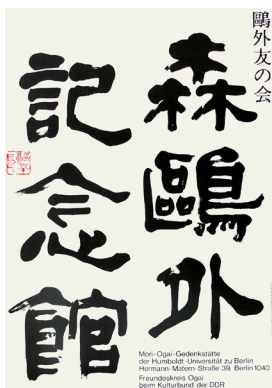 鷗外友の会
森鷗外
記念館
Mori-Ogai-Gedenkstätte
der Humboldt-Universität zu Berlin
Hermann-Matern-Straße 39, Berlin 1040
Freundeskreis Ogai
beim Kulturbund der DDR